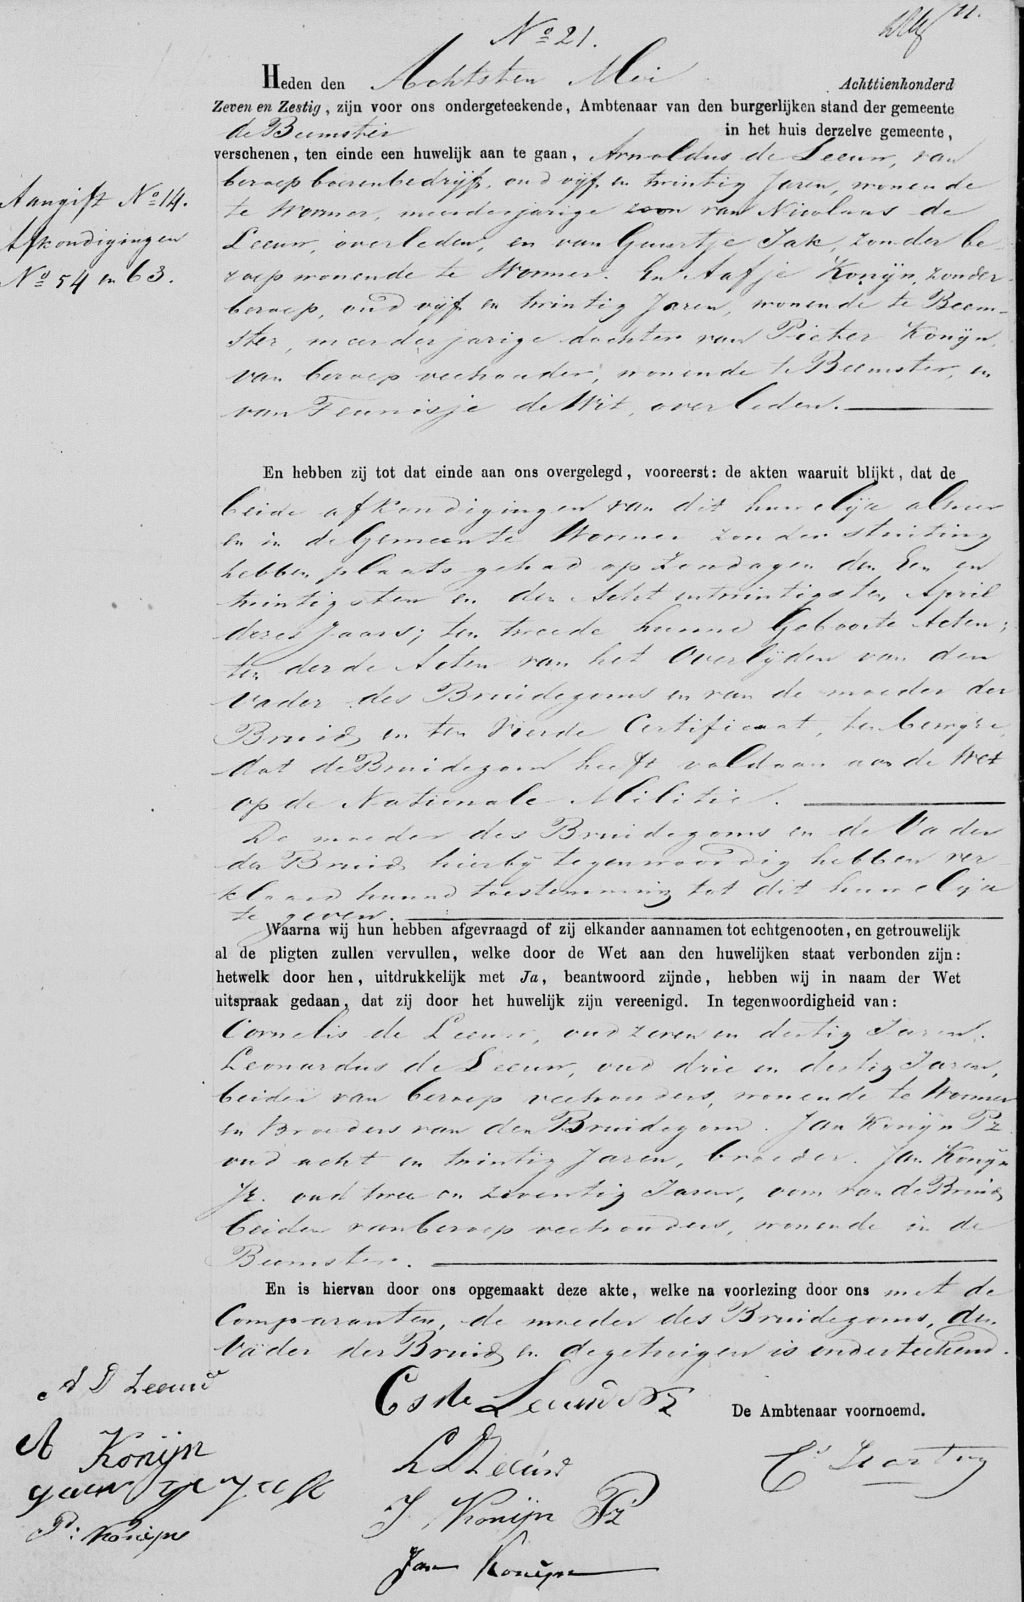 No 21.
Heden den Achtsten Mei Achttienhonderd
Zeven en Zestig, zijn voor ons ondergeteekende, Ambtenaar van den burgerlijken stand der gemeente
de Beemster in het huis derzelve gemeente,
verschenen, ten einde een huwelijk aan te gaan, Arnoldus de Leeuw, van
beroep boerenbedrijf, oud vijf en twintig Jaren, wonende
te Wormer, meerderjarige zoon van Nicolaas de
Leeuw, overleden, en van Guurtje Jak, zonder be
roep wonende te Wormer. En Aafje Konijn, zonder
beroep, oud vijf en twintig Jaren, wonende te Beem-
ster, meerderjarige dochter van Pieter Konijn,
van beroep veehouder, wonende te Beemster, en
van Teunisje de Wit, overleden.
Aangift No 14.
Afkondigingen
No 54 en 63.
En hebben zij tot dat einde aan ons overgelegd, vooreerst: de akten waaruit blijkt, dat de
beide afkondigingen van dit huwelijk alhier
en in de Gemeente Wormer zonder stuiting
hebben plaats gehad op Zondagen den Een en
twintigsten en den Acht en twintigsten April
dezes Jaars; ten tweede hunne Geboorte Acten;
ten derde Acten van het Overlijden van den
Vader des Bruidegoms en van de moeder der
Bruid, en ten Vierde Certificaat, ten bewijze,
dat de Bruidegom heeft voldaan aan de Wet
op de Nationale Militie.
De moeder des Bruidegoms en de Vader
der Bruid hierbij tegenwoordig hebben ver-
klaard hunne toestemming tot dit huwelijk
te geven.
Waarna wij hun hebben afgevraagd of zij elkander aannamen tot echtgenooten, en getrouwelijk
al de pligten zullen vervullen, welke door de Wet aan den huwelijken staat verbonden zijn:
hetwelk door hen, uitdrukkelijk met Ja, beantwoord zijnde, hebben wij in naam der Wet
uitspraak gedaan, dat zij door het huwelijk zijn vereenigd. In tegenwoordigheid van:
Cornelis de Leeuw, oud zeven en dertig Jaren.
Leonardus de Leeuw, oud drie en dertig Jaren,
beiden van beroep veehouders, wonende te Wormer
en Broeders van den Bruidegom. Jan Konijn Pz
oud acht en twintig Jaren, broeder. Jan Konijn
Jz. oud twee en zeventig Jaren, oom van de Bruid
beiden van beroep veehouders, wonende in de
Beemster.
En is hiervan door ons opgemaakt deze akte, welke na voorlezing door ons met de
Comparanten, de moeder des Bruidegoms, den
Vader der Bruid en de getuigen is onderteekend.
A D Leeuw
A Konijn
guurtje Jak
P: Konijn
Cs de Leeuw Nz
L D Leeuw
J. Konijn Pz
Jan Konijn
De Ambtenaar voornoemd.